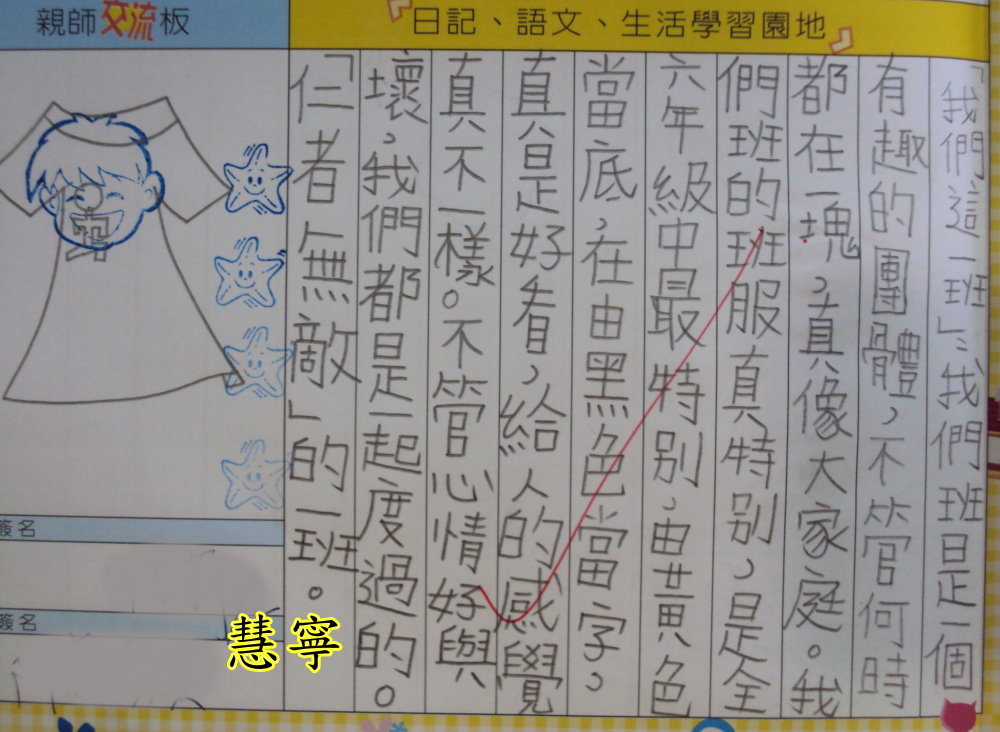 親師交流板
日記、語文、生活學習園地
「我們這一班」:我們班是一個
有趣的團體,不管何時
都在一塊,真像大家庭。我
們班的班服真特別,是全
六年級中最特別,由黃色
當底,在由黑色當字,
真是好看,給人的感覺
真不一樣。不管心情好與
壞,我們都是一起度過的。
「仁者無敵」的一班。
簽名
簽名
慧寧